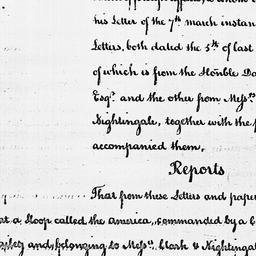 his Letter of the 7th march instan
Letters, both dated the 5th of last
of which is from the Honble Da
Esqr. and the other from Messrs
Nightingale, together with the p
accompanied them,
Reports
That from these Letters and paper
at a Sloop called the America, commanded by a
and, belonging to Messrs. Clark & Nightingal